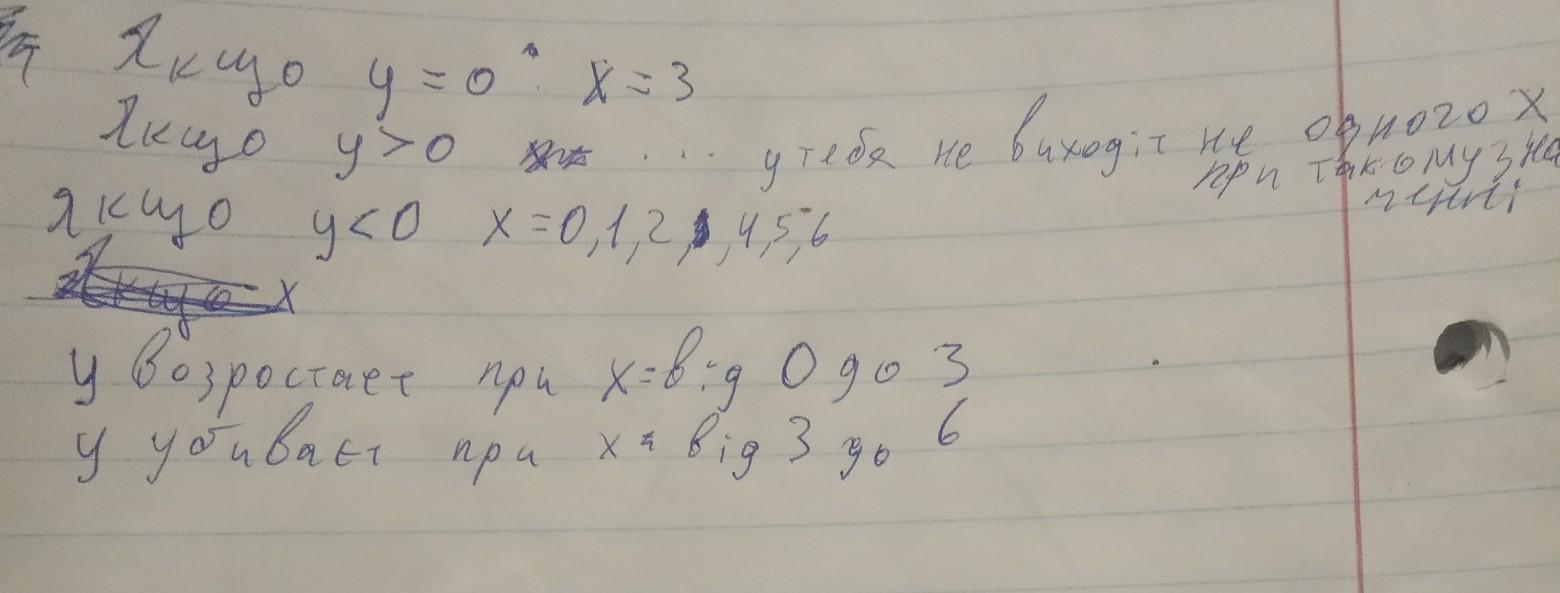 Якщо y = 0 x = 3
Якщо y > 0 ... у тебя не виходіт не одного x
при такому зна
ченні
Якщо y < 0 x = 0, 1, 2, 4, 5, 6
x
y возростает при x = від 0 до 3
y убиваєт при x = від 3 до 6